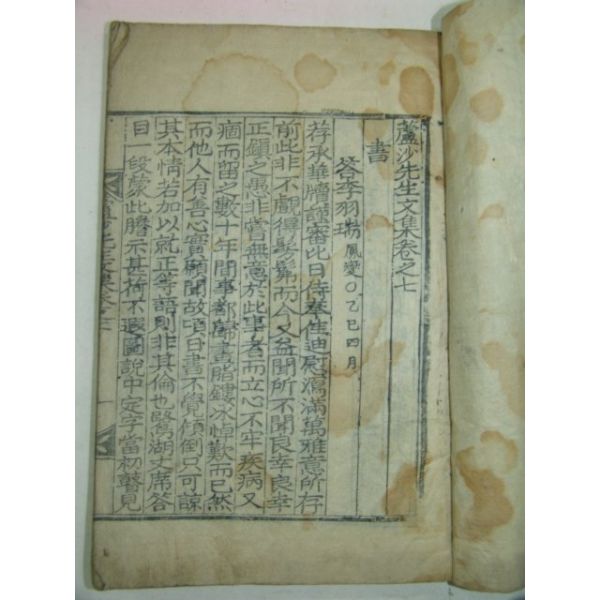 蘆沙先生文集卷之七
書
答李羽瑞鳳燮○乙巳四月
荐承華牘謹審比日侍奉佳迪慰瀉滿萬雅意所存
前此非不覿得髣髴而今又益聞所不聞良幸良幸
正鎭之愚非嘗無意於此事者而立心不牢疾病又
痼而留之數十年間事都歸畫脂鏤冰悼歎而已然
而他人有善心實願聞故頃日書不覺傾倒只可諒
其本情若加以就正等語則非其倫也鷺湖丈席答
目一段蒙此謄示甚荷不遐圖說中定字當初瞽見